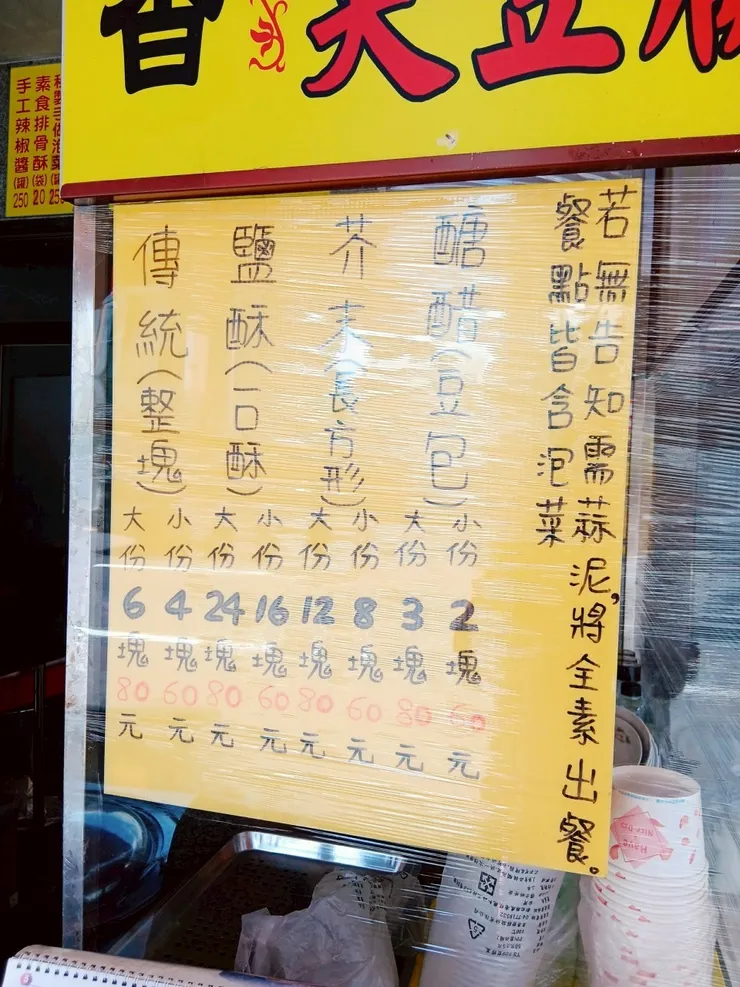 香 臭豆腐
若無告知需蒜泥，將全素出餐。
餐點皆含泡菜
醣醋(豆包)
小份 2塊 60元
大份 3塊 80元
芥末(長方形)
小份 8塊 60元
大份 12塊 80元
鹽酥(一口酥)
小份 16塊 60元
大份 24塊 80元
傳統(整塊)
小份 4塊 60元
大份 6塊 80元
素食排骨酥(袋)20
手工辣椒醬(罐)250